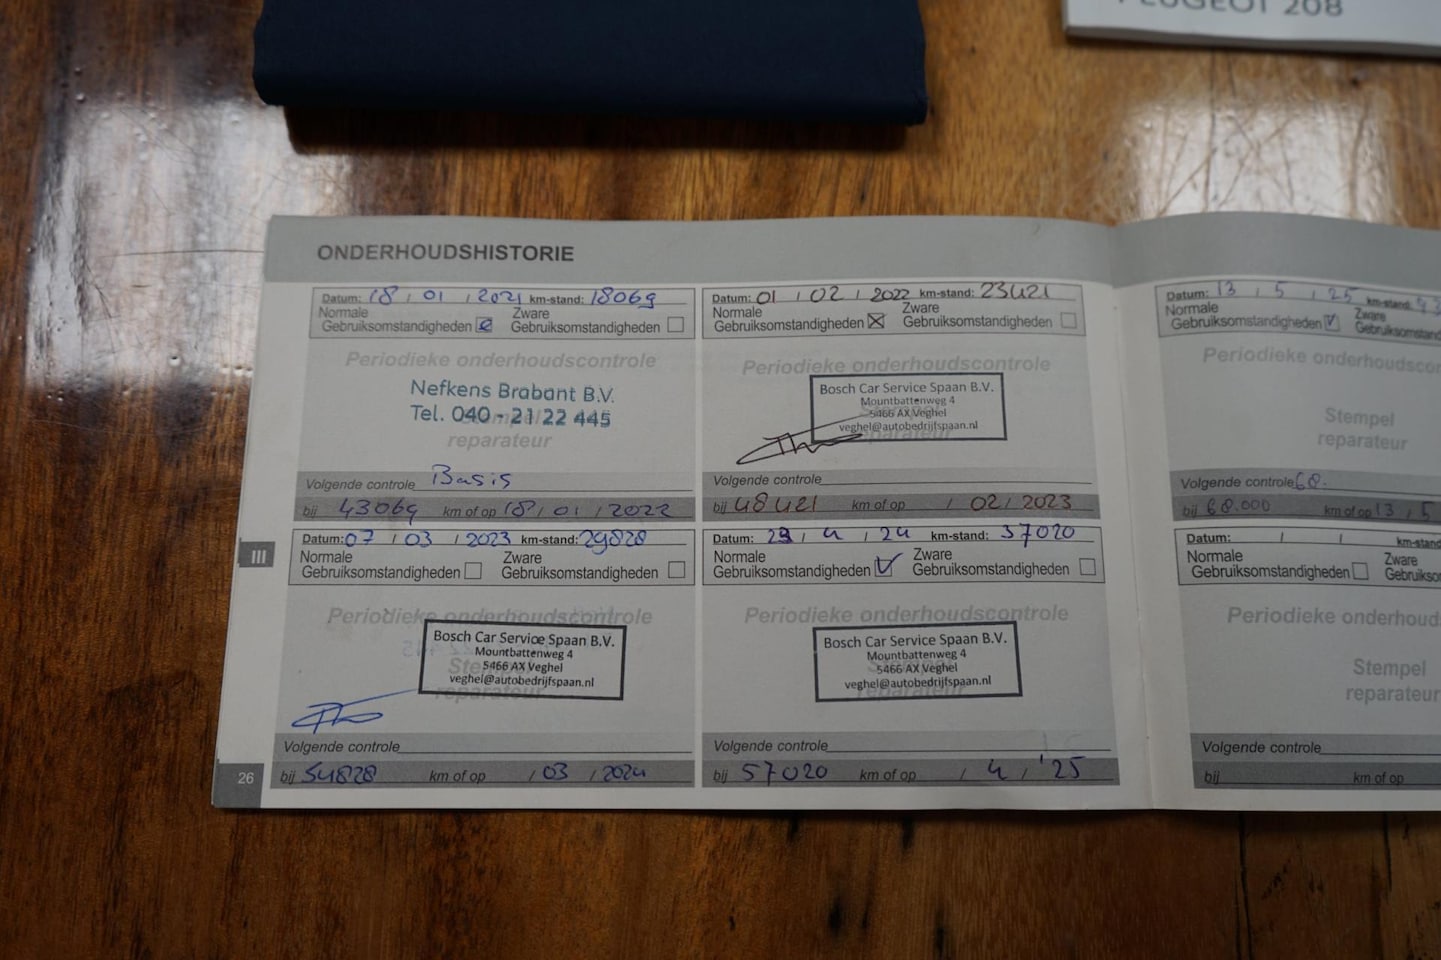 PEUGEOT 208
ONDERHOUDSHISTORIE
Datum: 18 / 01 / 2021 km-stand: 18069
Normale Zware
Gebruiksomstandigheden Gebruiksomstandigheden
Periodieke onderhoudscontrole
Nefkens Brabant B.V.
Tel. 040 - 21 22 445
Stempel
reparateur
Volgende controle Basis
bij 43069 km of op 18 / 01 / 2022
Datum: 01 / 02 / 2022 km-stand: 23421
Normale Zware
Gebruiksomstandigheden Gebruiksomstandigheden
Periodieke onderhoudscontrole
Bosch Car Service Spaan B.V.
Mountbattenweg 4
5466 AX Veghel
veghel@autobedrijfspaan.nl
reparateur
Volgende controle
bij 48421 km of op / 02 / 2023
III
Datum: 07 / 03 / 2023 km-stand: 29828
Normale Zware
Gebruiksomstandigheden Gebruiksomstandigheden
Periodieke onderhoudscontrole
Bosch Car Service Spaan B.V.
Mountbattenweg 4
5466 AX Veghel
Stempel
veghel@autobedrijfspaan.nl
reparateur
Volgende controle
bij 54828 km of op / 03 / 2024
26
Datum: 29 / 4 / 24 km-stand: 37020
Normale Zware
Gebruiksomstandigheden Gebruiksomstandigheden
Periodieke onderhoudscontrole
Bosch Car Service Spaan B.V.
Mountbattenweg 4
5466 AX Veghel
veghel@autobedrijfspaan.nl
reparateur
Volgende controle
bij 57020 km of op / 4 / '25
Datum: 13 / 5 / 25 km-stand:
Normale Zware
Gebruiksomstandigheden Gebruiksomstand
Periodieke onderhoudscor
Stempel
reparateur
Volgende controle 68.
bij 68.000 km of op 13 / 5
Datum: / / km-stand
Normale Zware
Gebruiksomstandigheden Gebruikso
Periodieke onderhoud
Stempel
reparateur
Volgende controle
bij km of op